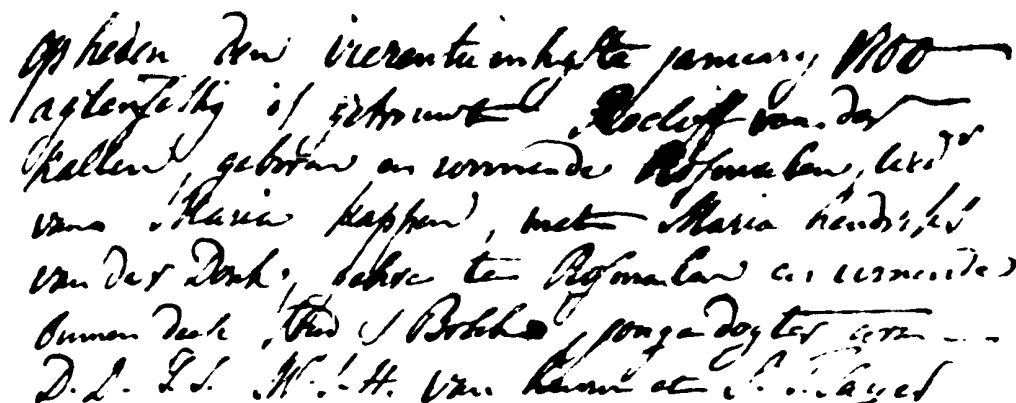 op heden den vierentwinhigste january 1800
agtenseshig is getrouwt Roeloff van der
kallen, geboren en wonnende Rosmalen, wedr
van Maria kappen, met Maria hendriks
van der Donk, gebore te Rosmalen en wonende
binnen deese van Jonge dogter
D. L. T. S. W. J. H. van heurn et